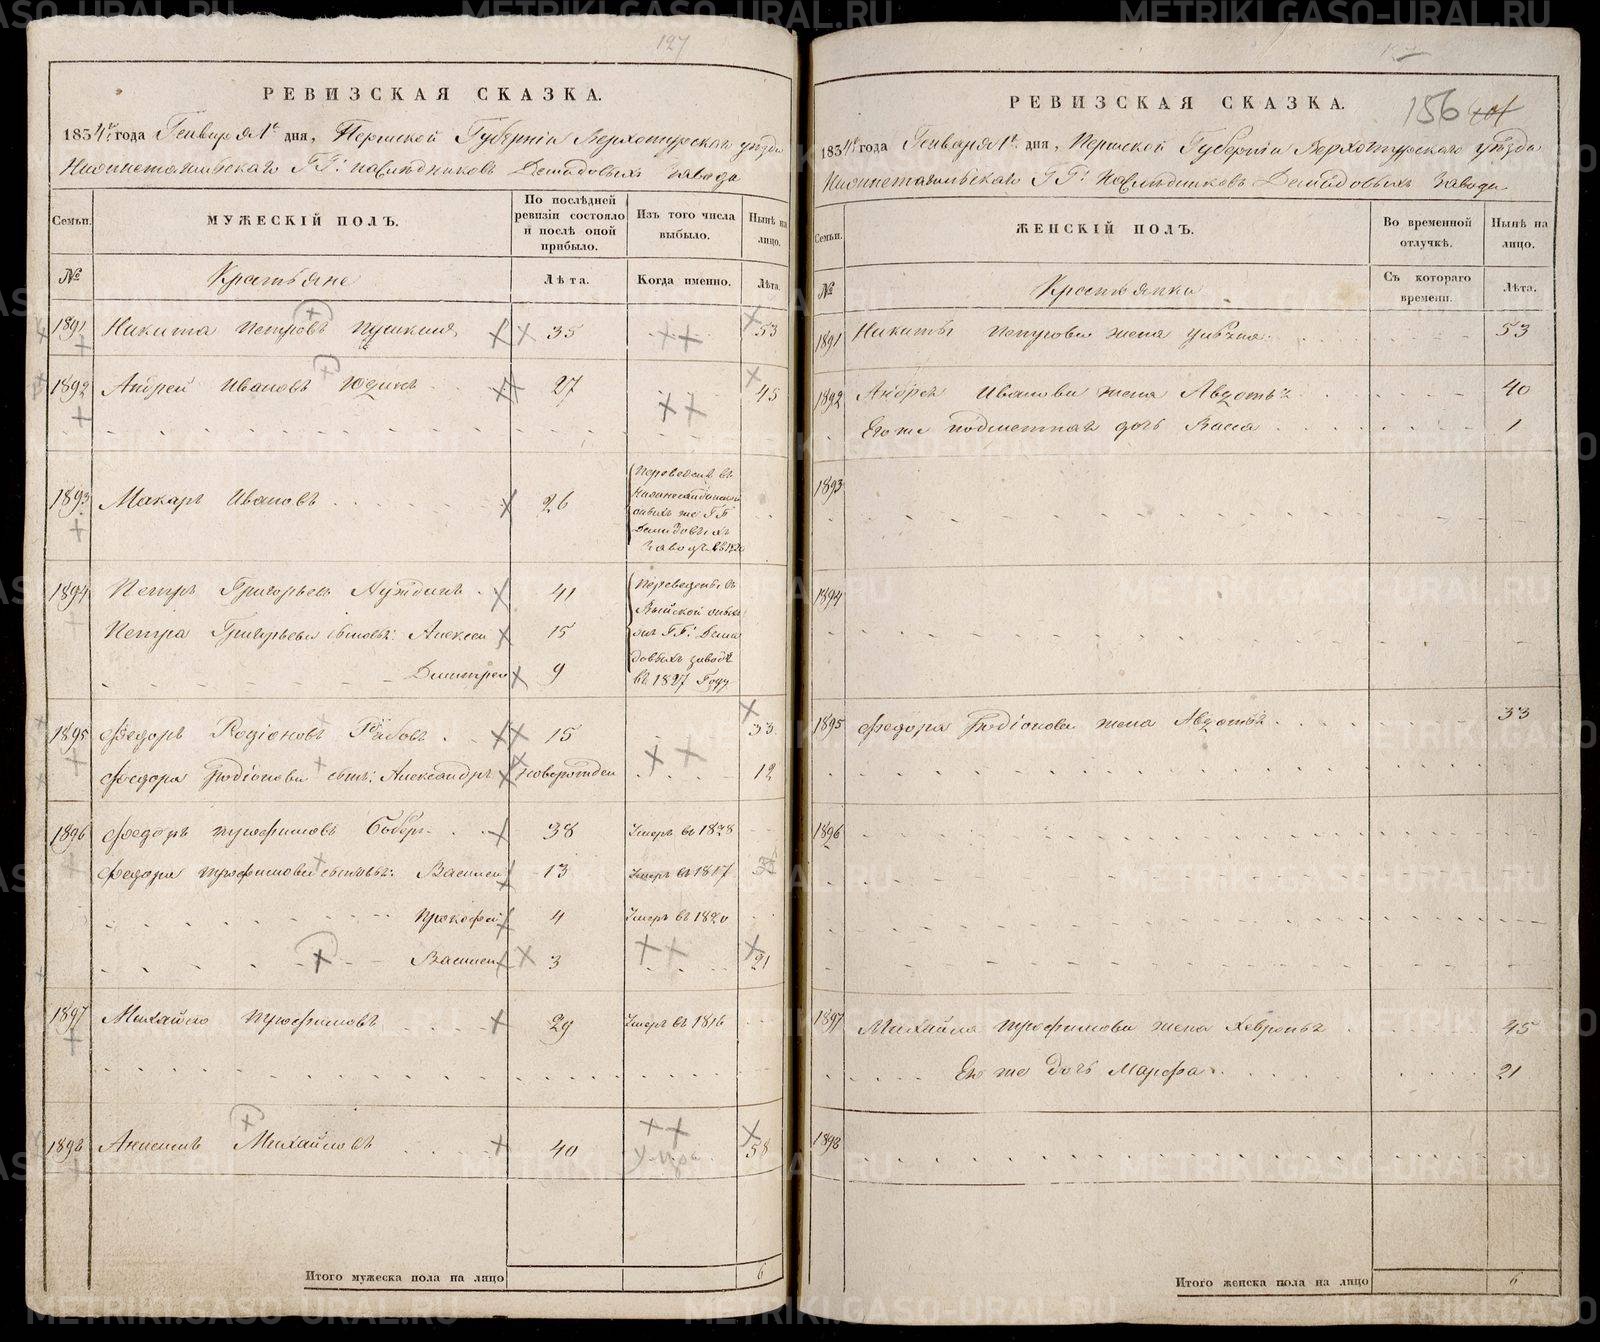 127
РЕВИЗСКАЯ СКАЗКА.
1834го года Генваря 1го дня, Пермской Губерніи Верхотурскаго уѣзда
Нижнетагильскаго ГГ: наслѣдниковъ Демидовыхъ Завода
Семьи.
МУЖЕСКІЙ ПОЛЪ.
По послѣдней ревизіи состояло и послѣ оной прибыло.
Изъ того числа выбыло.
Нынѣ на лицо.
№
Крестьяне
Лѣта.
Когда именно.
Лѣта.
1891 Никита Петровъ 35 53
1892 Андрей Ивановъ Юдинъ 27 45
1893 Макаръ Ивановъ 26 Переведенъ въ
Демидовыхъ
1894 Петръ Григорьевъ 41 Переведены въ
Петра Григорьева сыновья: Алексей 15 Выйской
ГГ: Деми
Дмитрей 9 довыхъ заводъ
въ 1827 Году
1895 Федоръ Родіоновъ Рябовъ 15 33
Федора Родіонова сынъ: Александръ новорожден 12
1896 Федоръ Трофимовъ Бобръ 38 Умеръ въ 1828
Федора Трофимова сыновья: Василей 13 Умеръ въ 1817
Прокофей 4 Умеръ въ 1820
Василей 3 21
1897 Михайло Трофимовъ 29 Умеръ въ 1816
1898 Анисимъ Михайловъ 40 58
Итого мужеска пола на лицо 6
РЕВИЗСКАЯ СКАЗКА.
156
1834го года Генваря 1го дня, Пермской Губерніи Верхотурскаго уѣзда
Нижнетагильскаго ГГ: Наслѣдниковъ Демидовыхъ Завода
Семьи.
ЖЕНСКІЙ ПОЛЪ.
Во временной отлучкѣ.
Нынѣ на лицо.
№
Крестьянки
Съ котораго времени.
Лѣта.
1891 Никиты Петрова жена 53
1892 Андрея Иванова жена Авдотья 40
Его же дочь Васса 1
1893
1894
1895 Федора Родіонова жена Авдотья 33
1896
1897 Михайла Трофимова жена Хевронья 45
Его же дочь Марфа 21
1898
Итого женска пола на лицо 6
METRIKI.GASO-URAL.RU